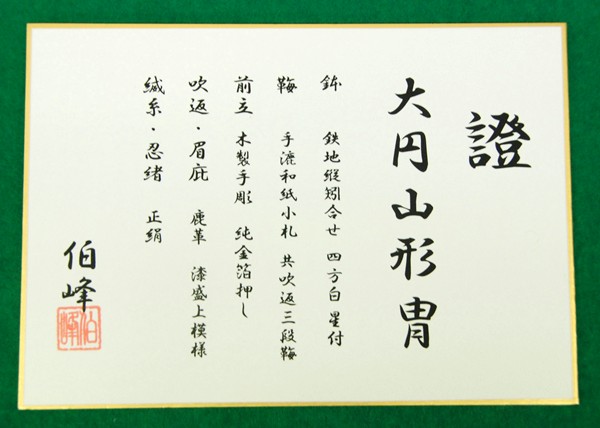 證
大円山形冑
鉢 鉄地縦矧合せ 四方白 星付
鞠 手漉和紙小札 共吹返三段鞠
前立 木製手彫 純金箔押し
吹返・眉庇 鹿革 漆盛上模様
縅糸・忍緒 正絹
伯峰
伯峰